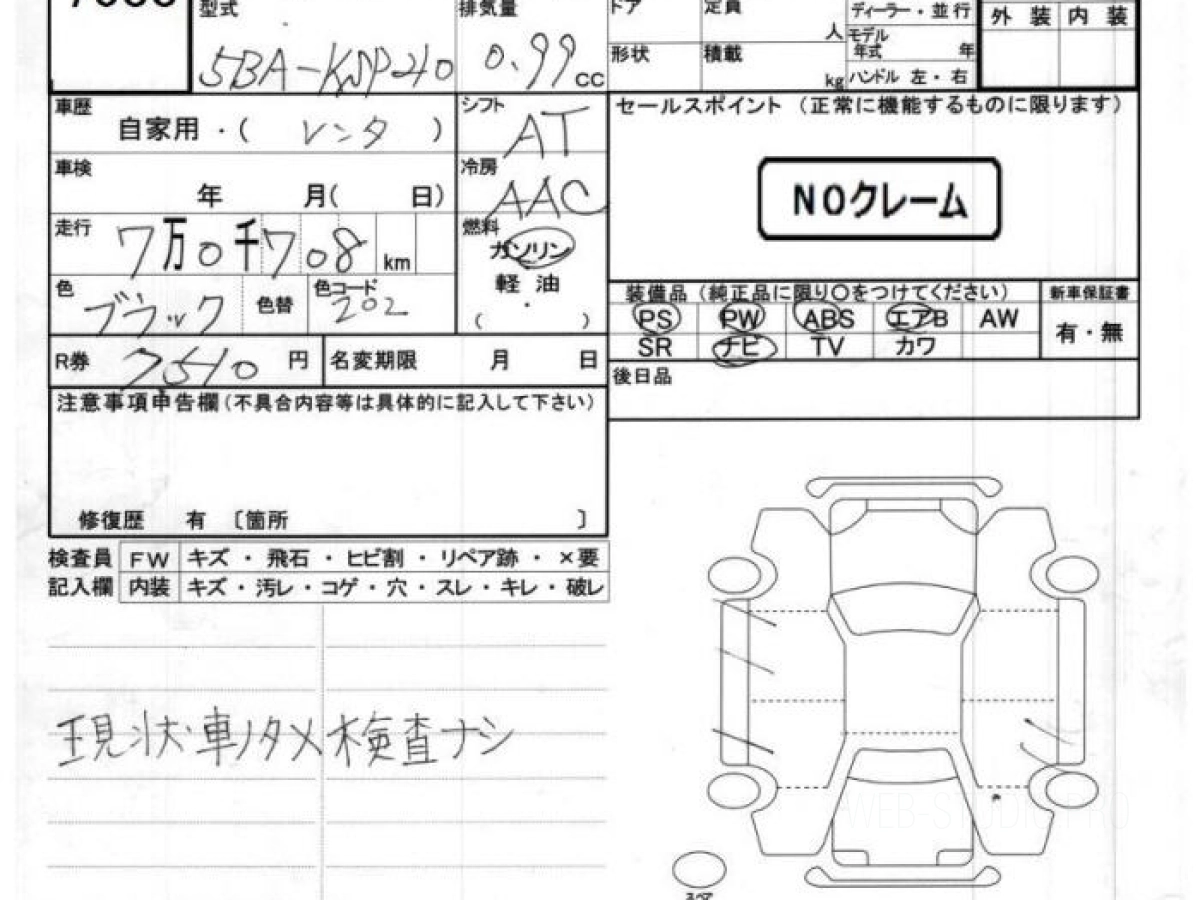 型式 排気量 ドア 定員 人 ディーラー・並行 外装 内装
5BA-KSP210 0.99 CC 形状 積載 kg モデル年式 年 ハンドル 左・右
車歴 自家用・( レンタ ) シフト AT セールスポイント (正常に機能するものに限ります)
車検 年 月( 日) 冷房 AAC NOクレーム
走行 7万0千708 km 燃料 ガソリン
軽油
( ・ )
色 ブラック 色替 色コード 202
装備品 (純正品に限り○をつけてください) 新車保証書
PS PW ABS エアB AW 有・無
SR ナビ TV カワ
R券 円 名変期限 月 日 後日品
注意事項申告欄(不具合内容等は具体的に記入して下さい)
修復歴 有 〔箇所 〕
検査員 FW キズ・飛石・ヒビ割・リペア跡・×要
記入欄 内装 キズ・汚レ・コゲ・穴・スレ・キレ・破レ
現状車ノタメ検査ナシ
WEB-STUDIO.PRO